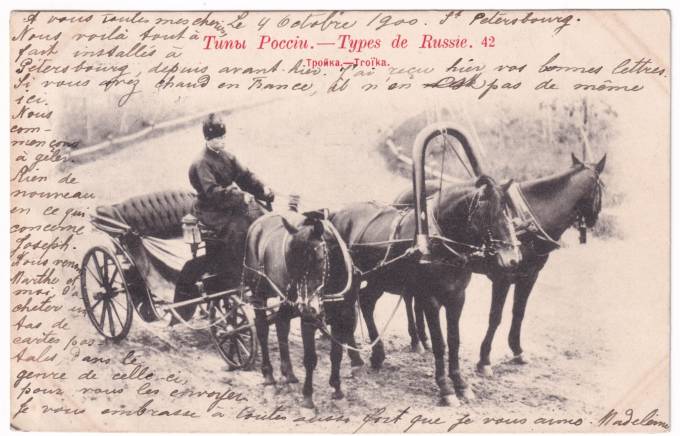 A vous toutes mes chéries, Le 4 Octobre 1900. St Petersbourg.
Nous voilà tout à
fait installés à
Pétersbourg, depuis avant-hier. J'ai reçu hier vos bonnes lettres.
Si vous avez chaud en France, il n'en est pas de même
ici.
Типы России.—Types de Russie. 42
Тройка.—Troïka.
Nous
com-
mençons
à geler.
Rien de
nouveau
en ce qui
concerne
Joseph.
Nous venons
Marthe et
moi d'a
cheter un
tas de
cartes pos
tales dans le
genre de celle-ci,
pour vous les envoyer.
Je vous embrasse à toutes aussi fort que je vous aime. Madeleine